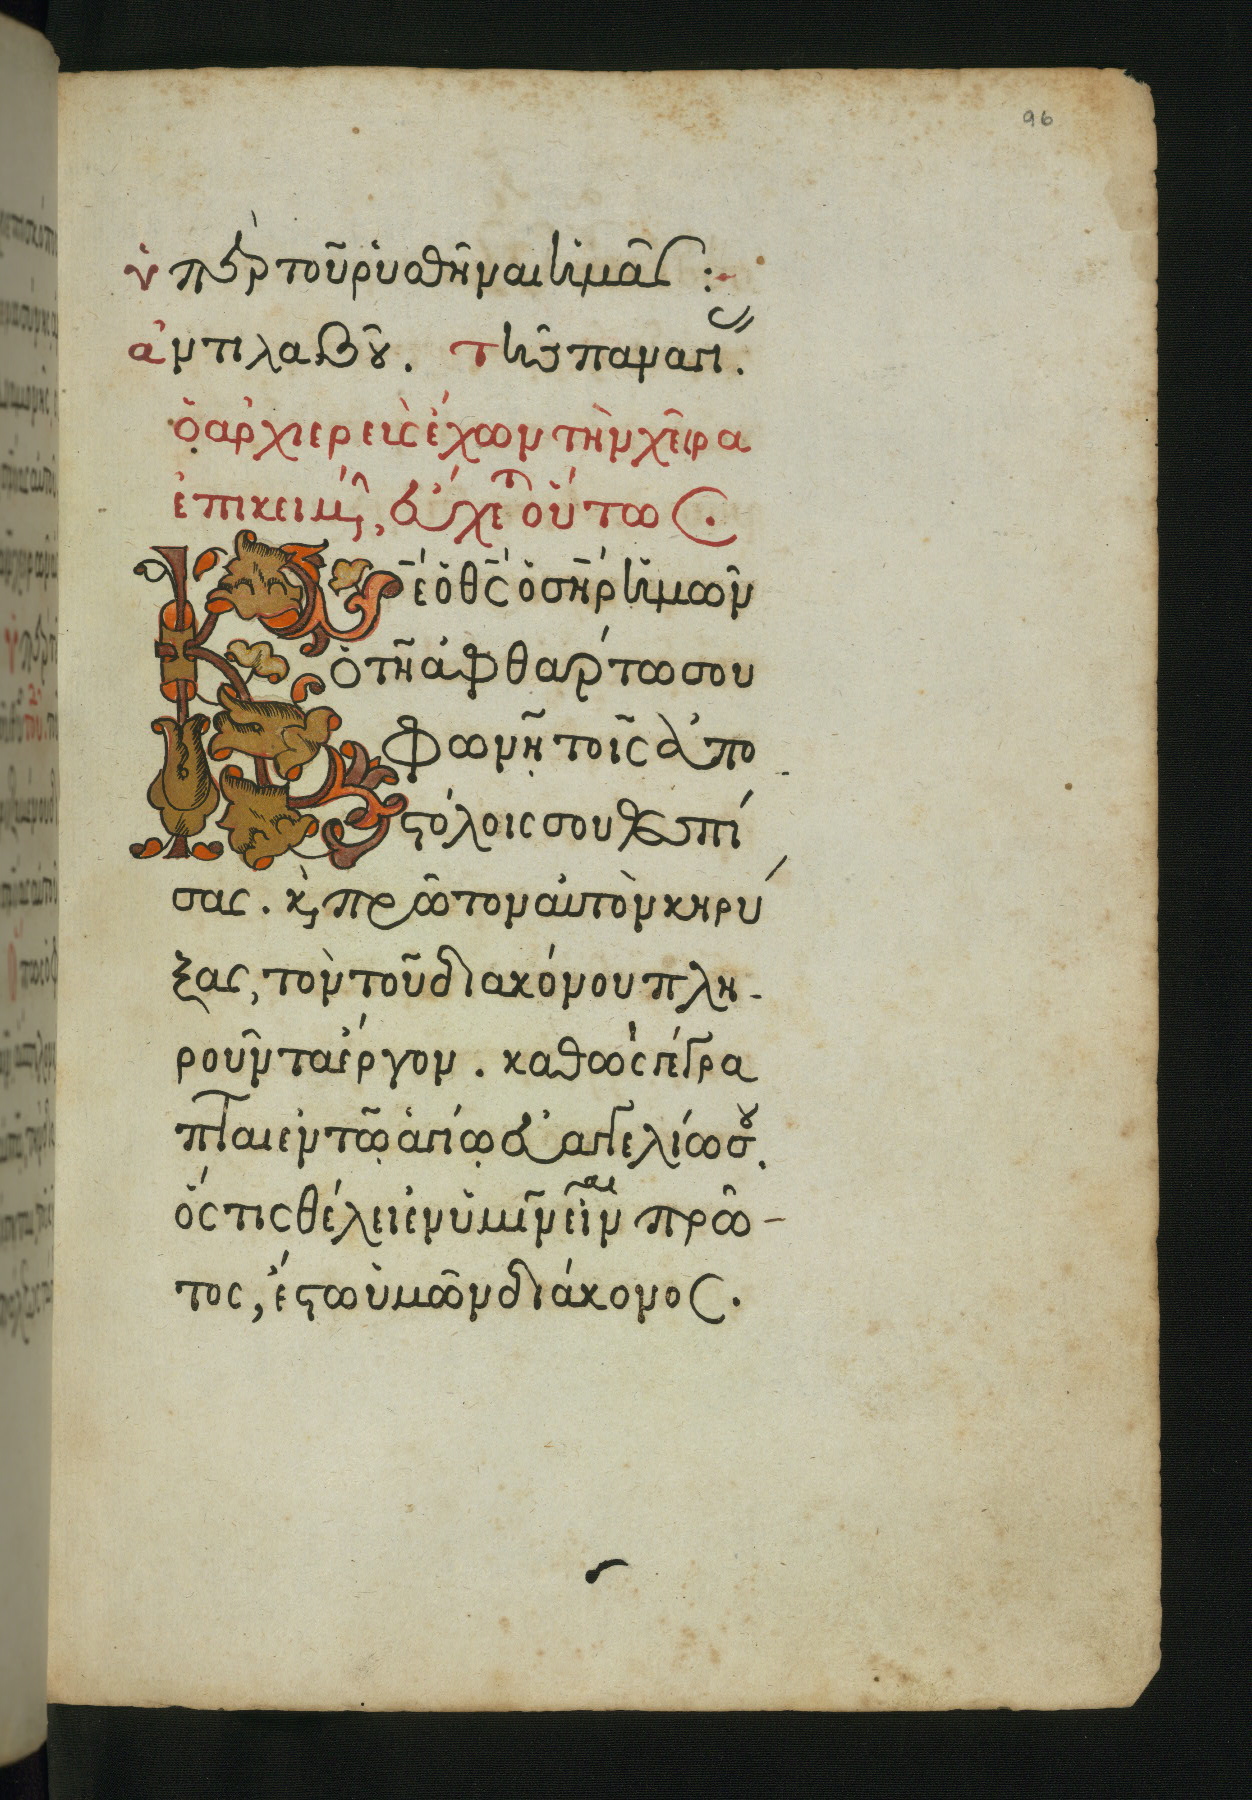 96
ὑπὲρ τοῦ ῥυσθῆναι ἡμᾶς :-
ἀντιλαβοῦ. τῆς παναγί.
ὁ ἀρχιερεὺς ἔχων τὴν χεῖρα
ἐπικειμέ, εὔχετ οὕτως.
Κέ ὁ θς ὁ σηρ ἡμῶν
ὁ τῆ ἀφθάρτω σου
φωνῇ τοῖς ἀπο
στόλοις σου θεσπί
σας. κ, πρῶτον αὐτὸν κηρύ
ξας, τὸν τοῦ διακόνου πλη-
ροῦντα ἔργον. καθὼς γέγρα
πται ἐν τῶ ἁγίῳ εὐαγγελίω σου.
ὅς τις θέλει ἐν ὑμῖν εἶναι πρῶ-
τος, ἔστω ὑμῶν διάκονος.